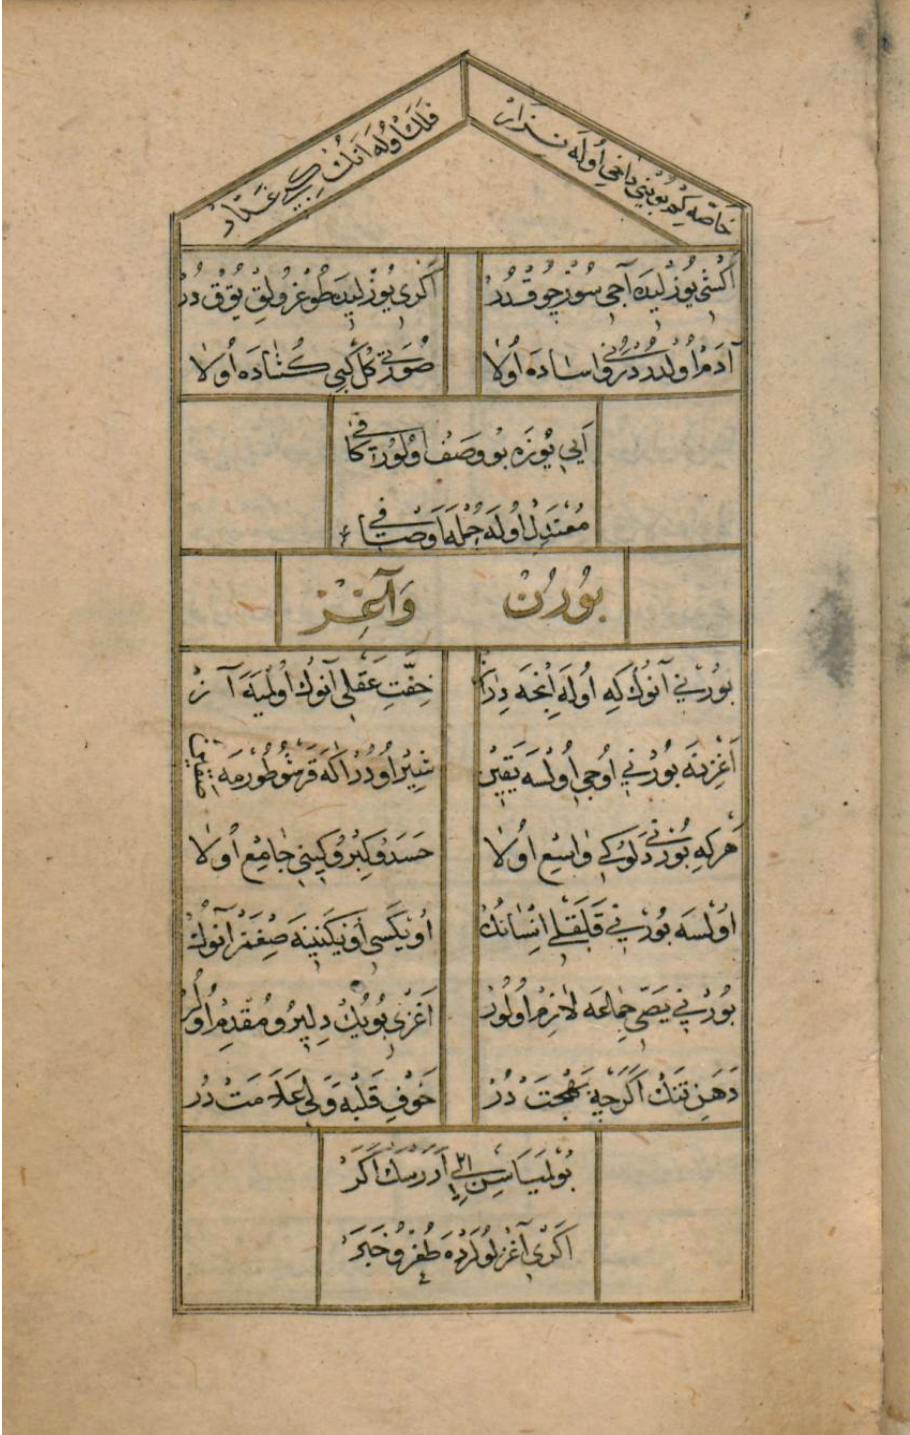 خاصه كیم بوینی داخی اوله نزار
فلك اوله آنك كبی غدار
اكشی یوزلیده آجی سوز چوقدر
اكری یوزلیده طوغرولق یوق در
آدم اولدر درونی ساده اولا
صورتی كل كبی كشاده اولا
ایی یوزه بو وصف اولور كافی
معتدل اوله جمله اوصافی
بورن وآغز
بورنی آنوك كه اوله اینجه دراز
خفت عقلی آنوك اولمیه آز
آغزینه بورنی اوجی اولسه یقین
شیر اودر اكه قرشو طورمه صقین
هركه بورنی دلوكی واسع اولا
حسد وكبر وكینی جامع اولا
اولسه بورنی قلقلی انسانك
اونیكسی اونیكنینه صغمز آنوك
بورنی یصی جماعه لازم اولور
آغزی بویوك دلیر ومقدم اولر
دهن تنك اكرچه بهجت در
خوف قلبه ولی علامت در
بولمیاسن اررسك اكر
اكری آغزلولرده طغرو خبر